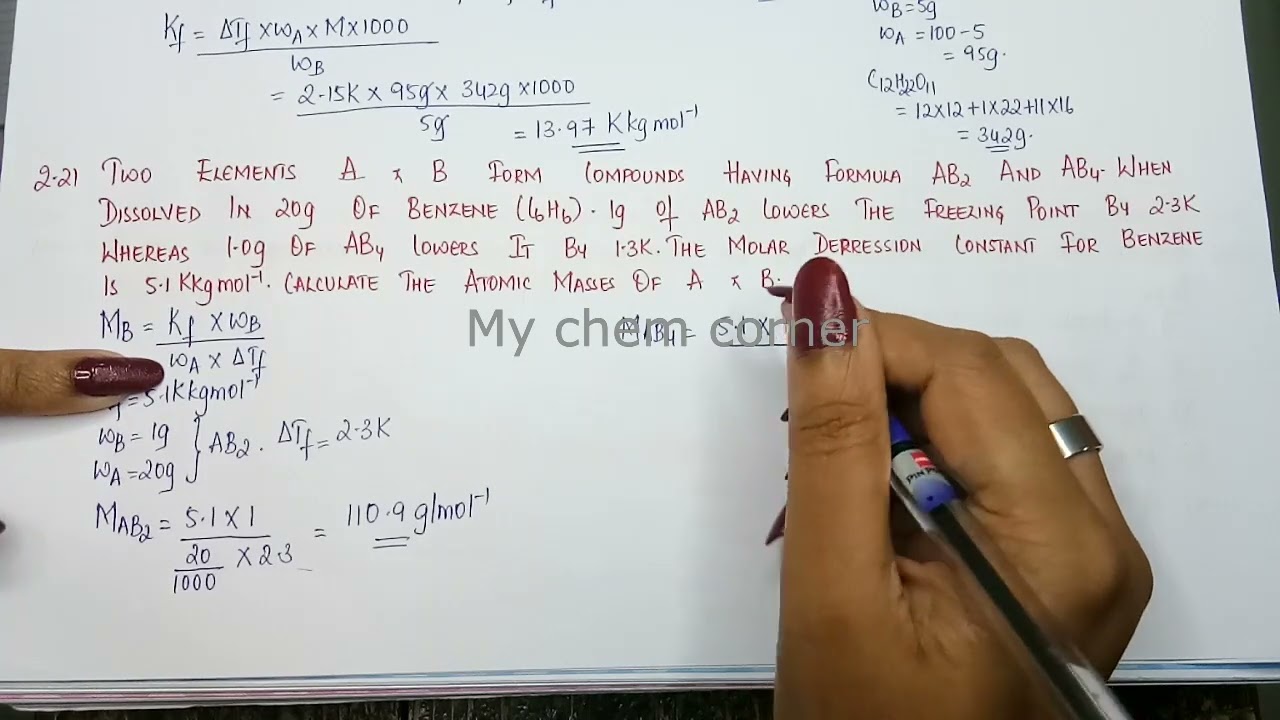 Kf = ΔTf × wA × M × 1000
wB
= 2.15K × 95g × 342g × 1000
5g
= 13.97 K kg mol⁻¹
wB = 5g
wA = 100 - 5
= 95g.
C12H22O11
= 12×12 + 1×22 + 11×16
= 342g.
2.21 TWO ELEMENTS A & B FORM COMPOUNDS HAVING FORMULA AB2 AND AB4. WHEN
DISSOLVED IN 20g OF BENZENE (C6H6). 1g Of AB2 LOWERS THE FREEZING POINT BY 2.3K
WHEREAS 1.0g OF AB4 LOWERS IT BY 1.3K. THE MOLAR DERRESSION CONSTANT FOR BENZENE
IS 5.1 KKgmol⁻¹. CALCULATE THE ATOMIC MASSES OF A & B.
MB = Kf × wB
wA × ΔTf
= 5.1KKgmol⁻¹
wB = 1g
wA = 20g
} AB2. ΔTf = 2.3K
MAB2 = 5.1 × 1
20
1000
× 2.3
= 110.9 g/mol⁻¹
MAB4 = 5.1 ×
My chem corner